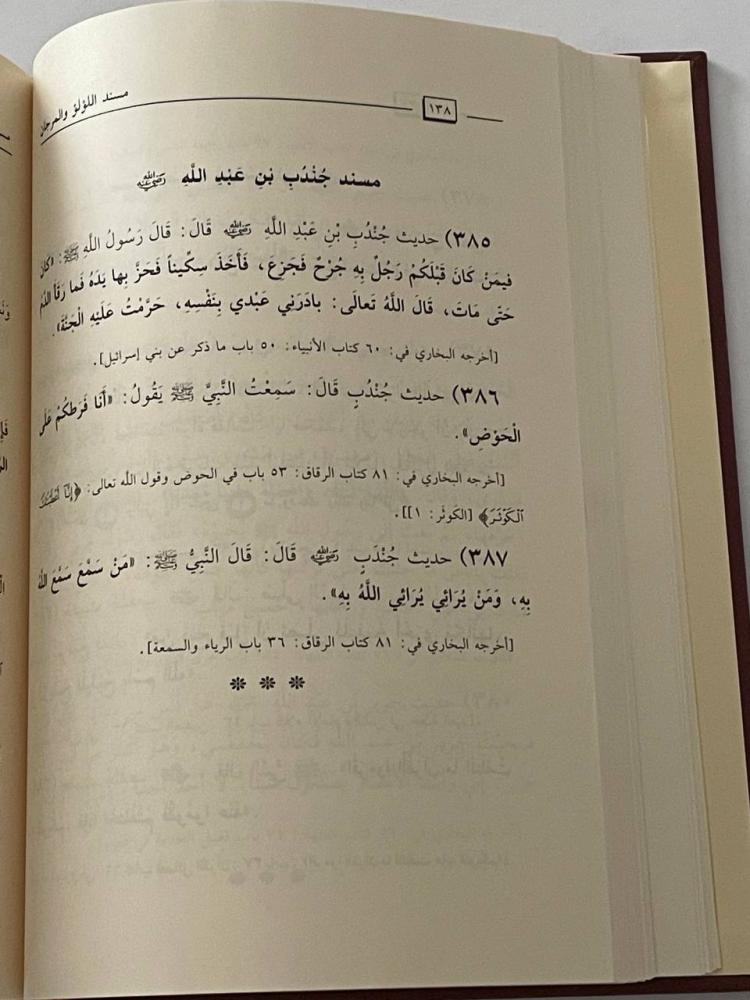 مسند اللؤلؤ والمرجان
١٣٨
مسند جُنْدُبِ بْنِ عَبْدِ اللَّهِ رضي الله عنه
٣٨٥) حديث جُنْدُبِ بْنِ عَبْدِ اللَّهِ رضي الله عنه قَالَ: قَالَ رَسُولُ اللَّهِ ﷺ: «كَانَ
فِيمَنْ كَانَ قَبْلَكُمْ رَجُلٌ بِهِ جُرْحٌ فَجَزِعَ، فَأَخَذَ سِكِّيناً فَحَزَّ بِها يَدَهُ فَما رَقَأَ الدَّمُ
حَتَّى مَاتَ، قَالَ اللَّهُ تَعَالَى: بادَرَنِي عَبْدي بِنَفْسِهِ، حَرَّمْتُ عَلَيْهِ الْجَنَّةَ».
[أخرجه البخاري في: ٦٠ كتاب الأنبياء: ٥٠ باب ما ذكر عن بني إسرائيل].
٣٨٦) حديث جُنْدُبٍ قَالَ: سَمِعْتُ النَّبِيَّ ﷺ يَقُولُ: «أَنَا فَرَطُكُمْ عَلَى
الْحَوْضِ».
[أخرجه البخاري في: ٨١ كتاب الرقاق: ٥٣ باب في الحوض وقول الله تعالى: ﴿إِنَّا أَعْطَيْنَاكَ
الْكَوْثَرَ﴾ [الكَوثَر: ١]].
٣٨٧) حديث جُنْدَبٍ رضي الله عنه قَالَ: قَالَ النَّبِيُّ ﷺ: «مَنْ سَمَّعَ سَمَّعَ اللَّهُ
بِهِ، وَمَنْ يُرَائِي يُرَائِي اللَّهُ بِهِ».
[أخرجه البخاري في: ٨١ كتاب الرقاق: ٣٦ باب الرياء والسمعة].